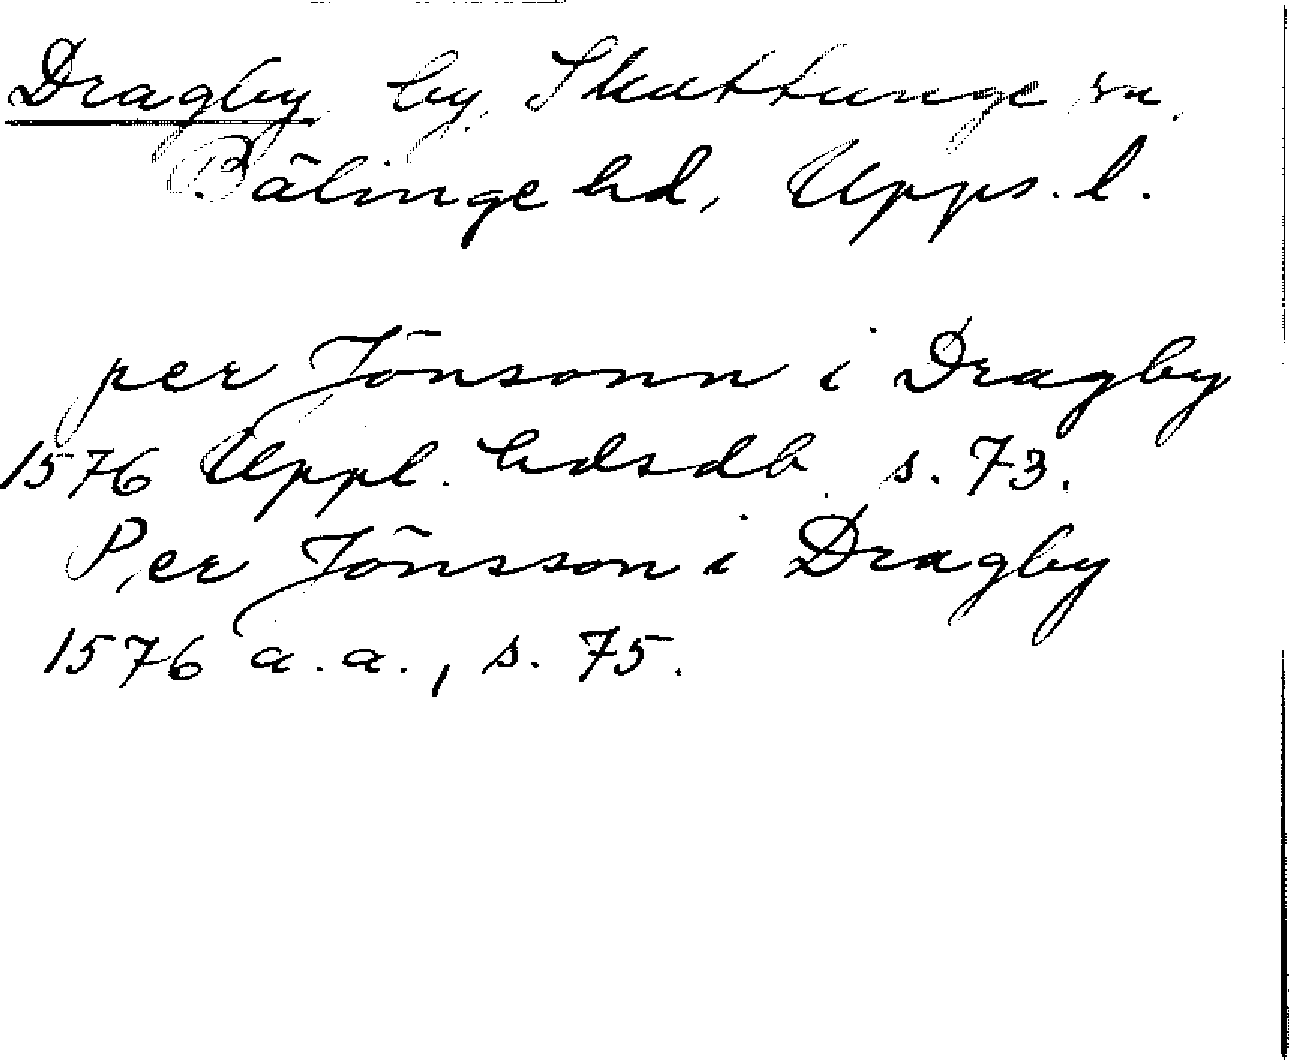 Dragby by, Skuttunge sn,
Bälinge hd, Upps. l.
per Jönsonn i Dragby
1576 Uppl. hdsdb. s. 73.
Per Jönsson i Dragby
1576 a.a., s. 75.